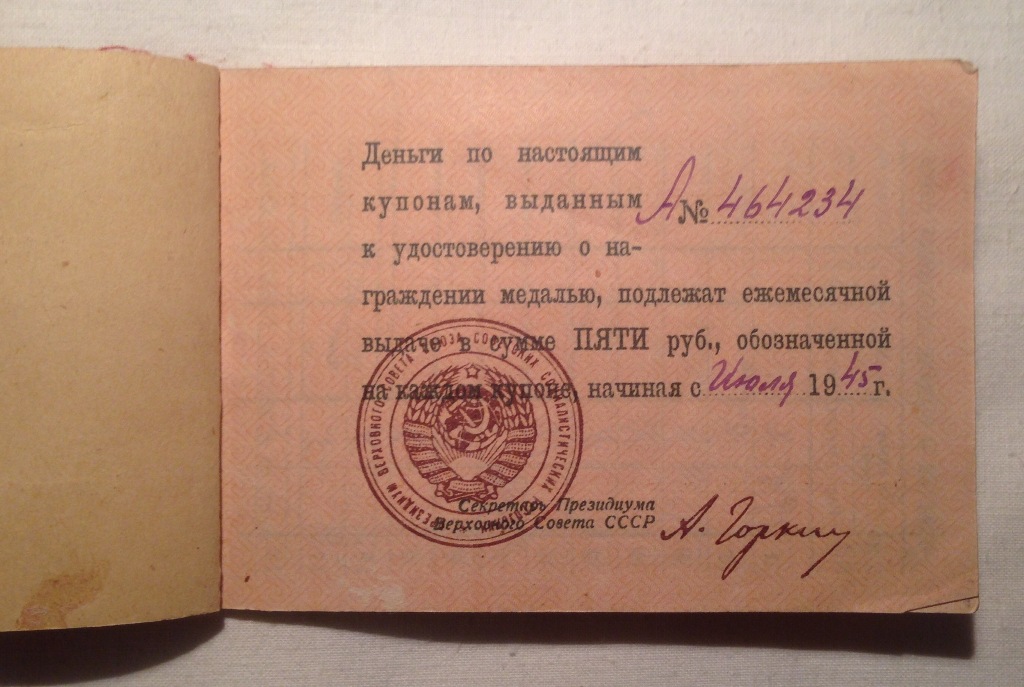 Деньги по настоящим
купонам, выданным А № 464234
к удостоверению о на-
граждении медалью, подлежат ежемесячной
выдаче в сумме ПЯТИ руб., обозначенной
на каждом купоне, начиная с Июля 1945 г.
ПРЕЗИДИУМ ВЕРХОВНОГО СОВЕТА СОЮЗА СОВЕТСКИХ СОЦИАЛИСТИЧЕСКИХ РЕСПУБЛИК
Секретарь Президиума
Верховного Совета СССР А. Горкин